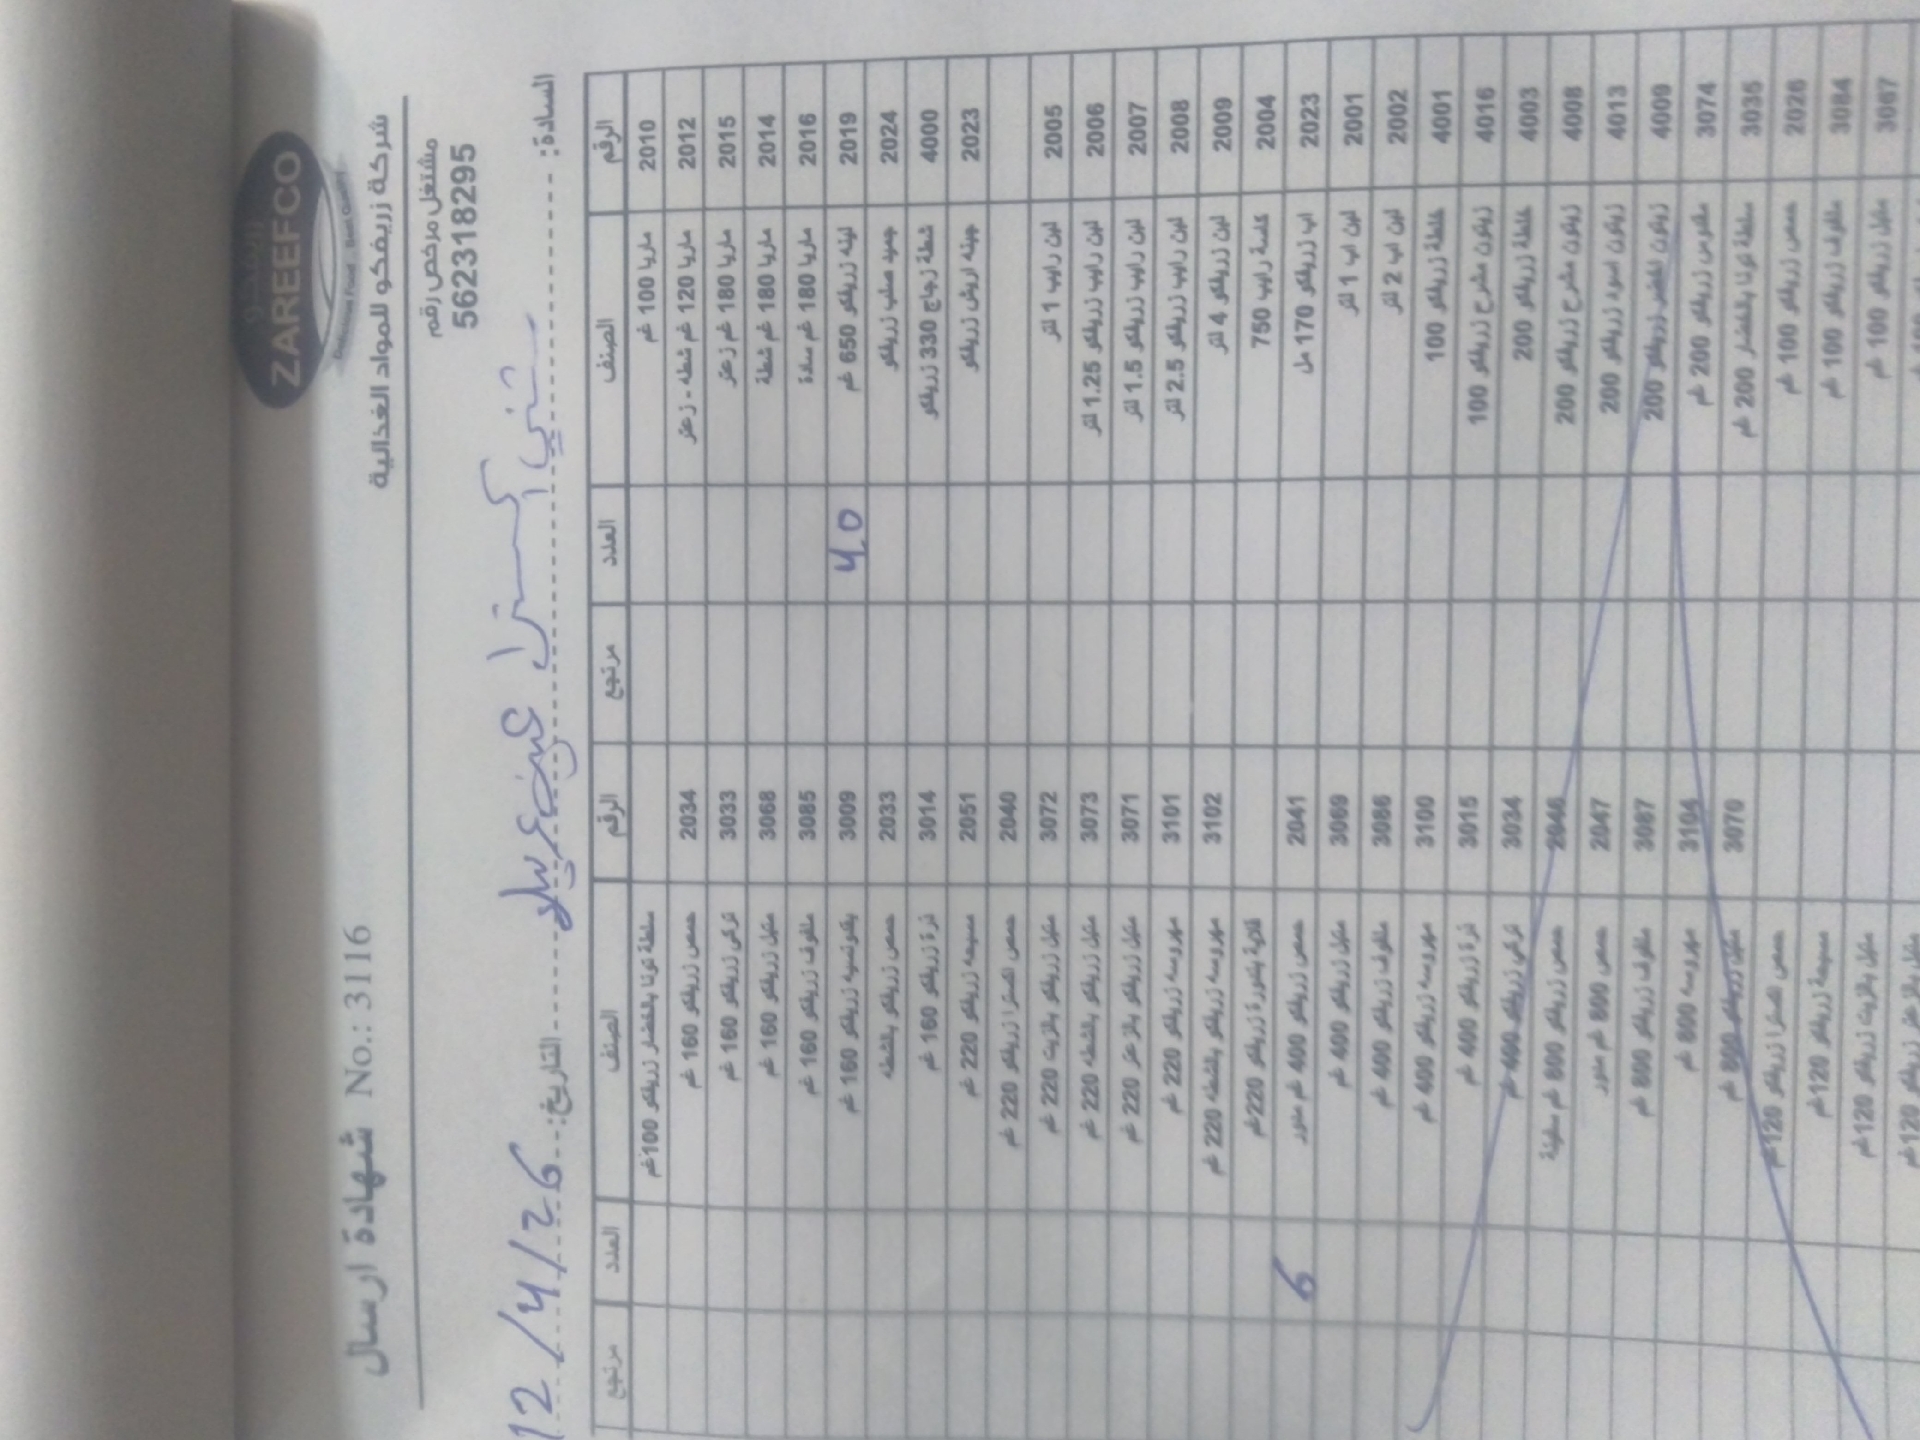 زريفكو
ZAREEFCO
شركة زريفكو للمواد الغذائية
شهادة ارسال No.: 3116
مشتغل مرخص رقم
562318295
السادة: اكسترا التاريخ: 12/4/26
الرقم الصنف العدد مرتجع الرقم الصنف العدد مرتجع
2010 ماريا 100 غم سلطة تونا بالخضار زريفكو 100غم
2012 ماريا 120 غم شطه - زعتر 2034 حمص زريفكو 160 غم
2015 ماريا 180 غم زعتر 3033 تركي زريفكو 160 غم
2014 ماريا 180 غم شطة 3068 متبل زريفكو 160 غم
2016 ماريا 180 غم سادة 3085 ملفوف زريفكو 160 غم
2019 لبنه زريفكو 650 غم 40 3009 بقدونسيه زريفكو 160 غم
2024 جميد صلب زريفكو 2033 حمص زريفكو بالشطه
4000 شطة زجاج 330 زريفكو 3014 ذرة زريفكو 160 غم
2023 جبنه اريش زريفكو 2051 مسبحه زريفكو 220 غم
2040 حمص اكسترا زريفكو 220 غم
2005 لبن رايب 1 لتر 3072 متبل زريفكو بالزيت 220 غم
2006 لبن رايب زريفكو 1.25 لتر 3073 متبل زريفكو بالشطه 220 غم
2007 لبن رايب زريفكو 1.5 لتر 3071 متبل زريفكو بالزعتر 220 غم
2008 لبن رايب زريفكو 2.5 لتر 3101 مهروسه زريفكو 220 غم
2009 لبن زريفكو 4 لتر 3102 مهروسه زريفكو بالشطه 220 غم
2004 كاسة رايب 750 قلاية بندورة زريفكو 220غم
2023 اب زريفكو 170 مل 2041 حمص زريفكو 400 غم مدور 6
2001 لبن اب 1 لتر 3069 متبل زريفكو 400 غم
2002 لبن اب 2 لتر 3086 ملفوف زريفكو 400 غم
4001 خلطة زريفكو 100 3100 مهروسه زريفكو 400 غم
4016 زيتون مشرح زريفكو 100 3015 ذرة زريفكو 400 غم
4003 خلطة زريفكو 200 3034 تركي زريفكو 400 غم
4008 زيتون مشرح زريفكو 200 2046 حمص زريفكو 800 غم مطبوخة
4013 زيتون اسود زريفكو 200 2047 حمص 800 غم مدور
4009 زيتون اخضر زريفكو 200 3087 ملفوف زريفكو 800 غم
3074 مقدوس زريفكو 200 غم 3104 مهروسه 800 غم
3035 سلطة تونا بالخضار 200 غم 3070 متبل زريفكو 800 غم
2026 حمص زريفكو 100 غم حمص اكسترا زريفكو 120 غم
3084 ملفوف زريفكو 100 غم مسبحة زريفكو 120غم
3067 متبل زريفكو 100 غم متبل بالزيت زريفكو 120غم
متبل بالزعتر زريفكو 120 غم